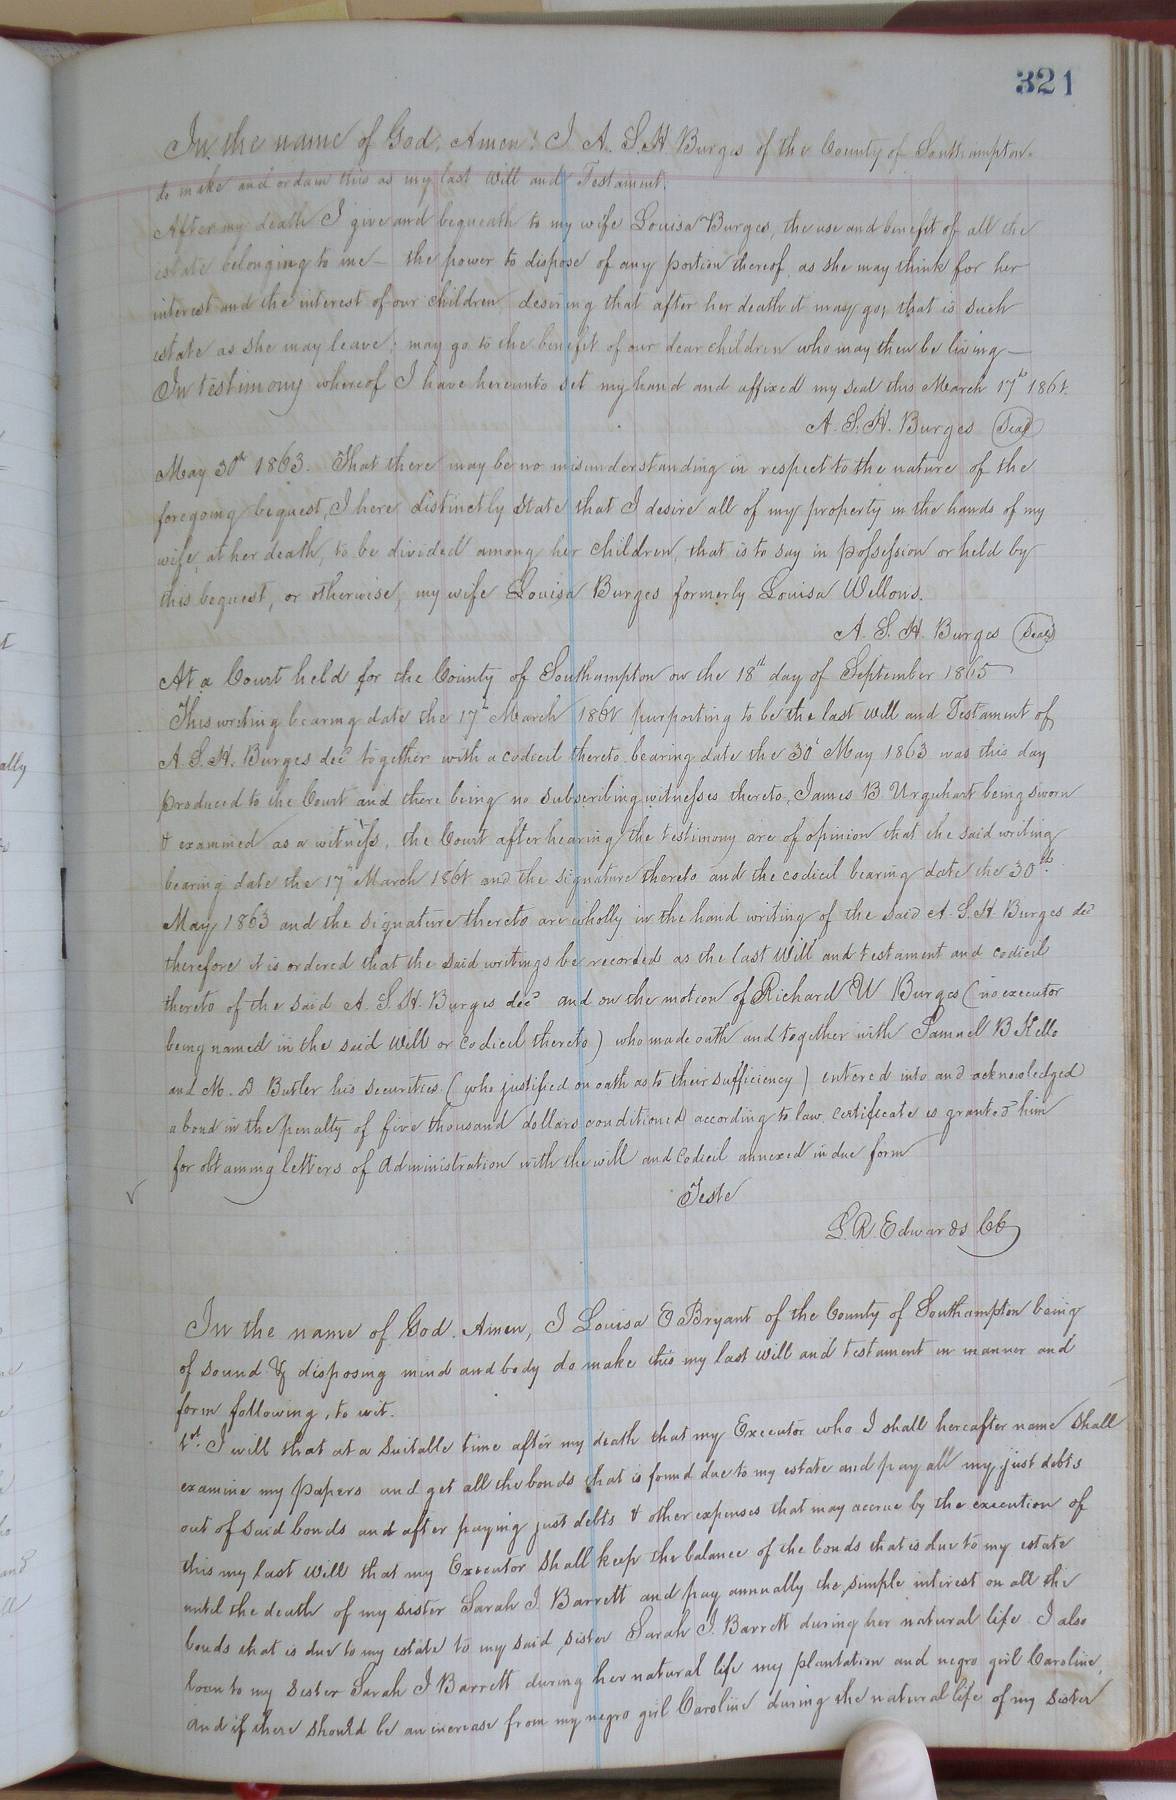 321
In the name of God, Amen! I A. S. H Burges of the County of Southampton
do make and ordain this as my last Will and Testament.
After my death I give and bequeath to my wife Louisa Burges, the use and benefit of all the
estate belonging to me – the power to dispose of any portion thereof, as she may think for her
interest and the interest of our children, desiring that after her death it may go, that is such
estate as she may leave, may go to the benefit of our dear children who may then be living –
In testimony whereof I have hereunto set my hand and affixed my seal this March 17th 1861.
A. S. H. Burges Seal
May 30th 1863. That there may be no misunderstanding in respect to the nature of the
foregoing bequest, I here distinctly state that I desire all of my property in the hands of my
wife, at her death, to be divided among her children, that is to say in possession or held by
this bequest, or otherwise, my wife Louisa Burges formerly Louisa Wellons.
A. S. H. Burges Seal
At a Court held for the County of Southampton on the 18th day of September 1865
This writing bearing date the 17th March 1861 purporting to be the last will and Testament of
A. S. H. Burges decd together with a codicil thereto bearing date the 30th May 1863 was this day
produced to the Court and there being no subscribing witnesses thereto, James B. Urquhart being sworn
& examined as a witness, the Court after hearing the testimony are of opinion that the said writing
bearing date the 17th March 1861 and the signature thereto and the codicil bearing date the 30th
May 1863 and the signature thereto are wholly in the hand writing of the said A. S. H. Burges decd
therefore it is ordered that the said writings be recorded as the last Will and testament and codicil
thereto of the said A. S. H. Burges decd and on the motion of Richard W Burges (no executor
being named in the said Will or codicil thereto) who made oath and together with Samuel B Kello
and M. D Butler his securities (who justified on oath as to their sufficiency) entered into and acknowledged
a bond in the penalty of five thousand dollars conditioned according to law, certificate is granted him
for obtaining letters of Administration with the will and codicil annexed in due form
Teste
L. R. Edwards CC
In the name of God. Amen, I Louisa E Bryant of the County of Southampton being
of sound & disposing mind and body do make this my last will and testament in manner and
form following, to wit.
1st. I will that at a suitable time after my death that my Executor who I shall hereafter name shall
examine my papers and get all the bonds that is found due to my estate and pay all my just debts
out of said bonds and after paying just debts & other expenses that may accrue by the execution of
this my last will that my Executor shall keep the balance of the bonds that is due to my estate
until the death of my sister Sarah J. Barrett and pay annually the simple interest on all the
bonds that is due to my estate to my said sister Sarah J. Barrett during her natural life I also
loan to my sister Sarah J Barrett during her natural life my plantation and negro girl Caroline,
and if there should be an increase from my negro girl Caroline during the natural life of my sister